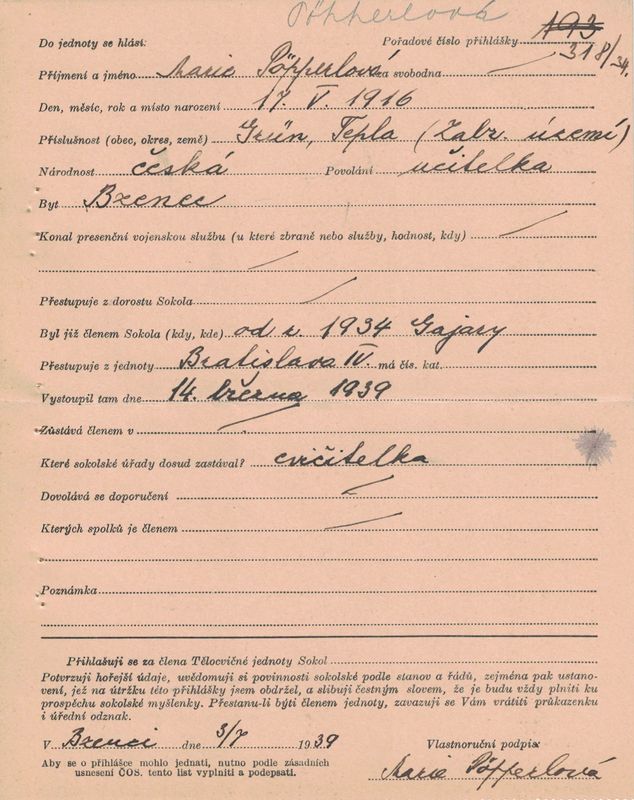 Pöpperlová
Do jednoty se hlásí:
Pořadové číslo přihlášky 193
318/34.
Příjmení a jméno Marie Pöpperlová za svobodna
Den, měsíc, rok a místo narození 17. V. 1916
Příslušnost (obec, okres, země) Grün, Tepla (Zabr. území)
Národnost česká Povolání učitelka
Byt Bzenec
Konal presenční vojenskou službu (u které zbraně nebo služby, hodnost, kdy)
Přestupuje z dorostu Sokola
Byl již členem Sokola (kdy, kde) od r. 1934 Gajary
Přestupuje z jednoty Bratislava IV. má čís. kat.
Vystoupil tam dne 14. března 1939
Zůstává členem v
Které sokolské úřady dosud zastával? cvičitelka
Dovolává se doporučení
Kterých spolků je členem
Poznámka
Přihlašuji se za člena Tělocvičné jednoty Sokol
Potvrzuji hořejší údaje, uvědomuji si povinnosti sokolské podle stanov a řádů, zejména pak ustano-
vení, jež na útržku této přihlášky jsem obdržel, a slibuji čestným slovem, že je budu vždy plniti ku
prospěchu sokolské myšlenky. Přestanu-li býti členem jednoty, zavazuji se Vám vrátiti průkazenku
i úřední odznak.
V Bzenci dne 3/7 1939 Vlastnoruční podpis:
Aby se o přihlášce mohlo jednati, nutno podle zásadních
usnesení ČOS. tento list vyplniti a podepsati.
Marie Pöpperlová